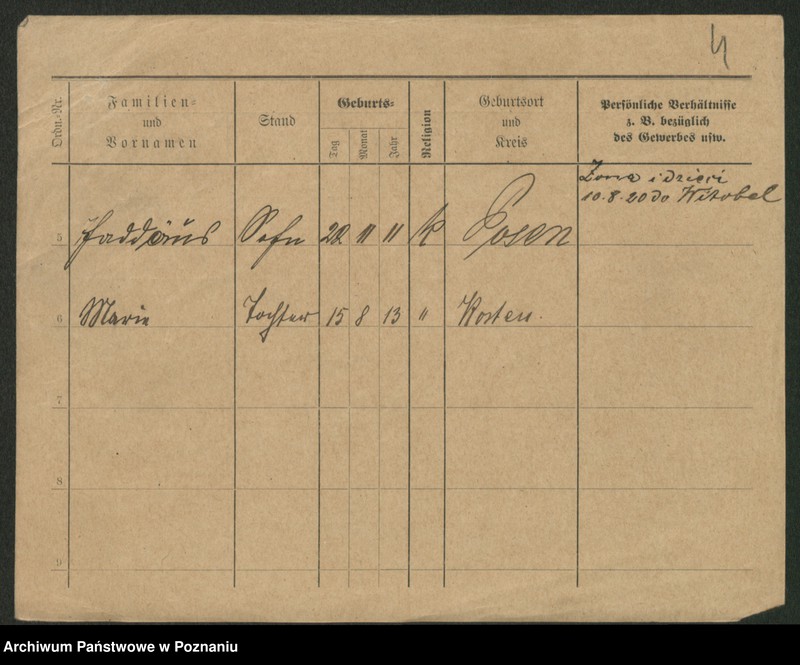 4
Ordn.-Nr.
Familien-
und
Vornamen
Stand
Geburts-
Tag
Monat
Jahr
Religion
Geburtsort
und
Kreis
Persönliche Verhältnisse
z. B. bezüglich
des Gewerbes usw.
Żona i dzieci
10.8.20 do Witobel
5 Faddäus Sohn 22 11 11 K Posen
6 Marie Tochter 15 8 13 " Kosten.
7
8
9
Archiwum Państwowe w Poznaniu